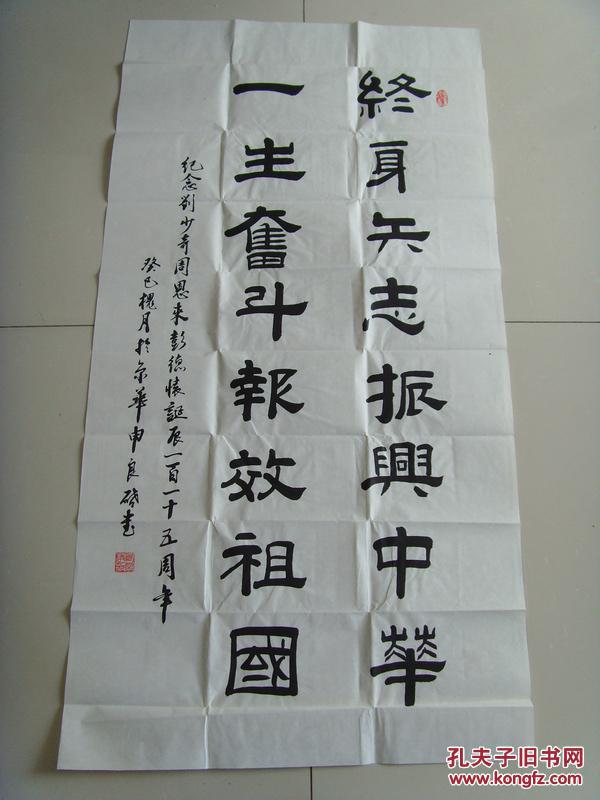 終身矢志振興中華
一生奮斗報效祖國
纪念刘少奇周恩来彭德懷誕辰一百一十五周年
癸巳槐月於京華申良書
孔夫子旧书网
www.kongfz.com